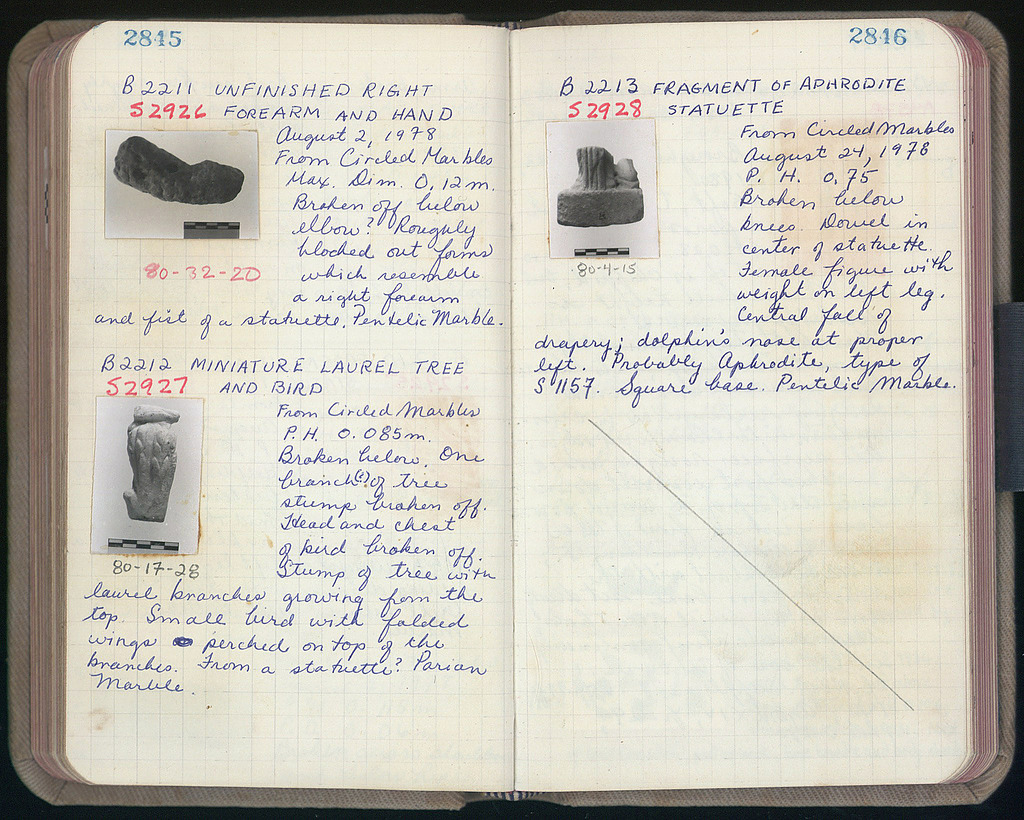 2845
B 2211 UNFINISHED RIGHT
S2926 FOREARM AND HAND
August 2, 1978
From Circled Marbles
Max. Dim. 0.12 m.
Broken off below
elbow? Roughly
blocked out forms
which resemble
a right forearm
and fist of a statuette. Pentelic Marble.
80-32-20
B2212 MINIATURE LAUREL TREE
S2927 AND BIRD
From Circled Marbles
P.H. 0.085m.
Broken below. One
branch(?) of tree
stump broken off.
Head and chest
of bird broken off.
Stump of tree with
80-17-28
laurel branches growing from the
top. Small bird with folded
wings perched on top of the
branches. From a statuette? Parian
Marble.
2846
B 2213 FRAGMENT OF APHRODITE
S2928 STATUETTE
From Circled Marbles
August 24, 1978
P. H. 0.75
Broken below
knees. Dowel in
center of statuette.
Female figure with
weight on left leg.
Central fall of
80-4-15
drapery; dolphin's nose at proper
left. Probably Aphrodite, type of
S 1157. Square base. Pentelic Marble.